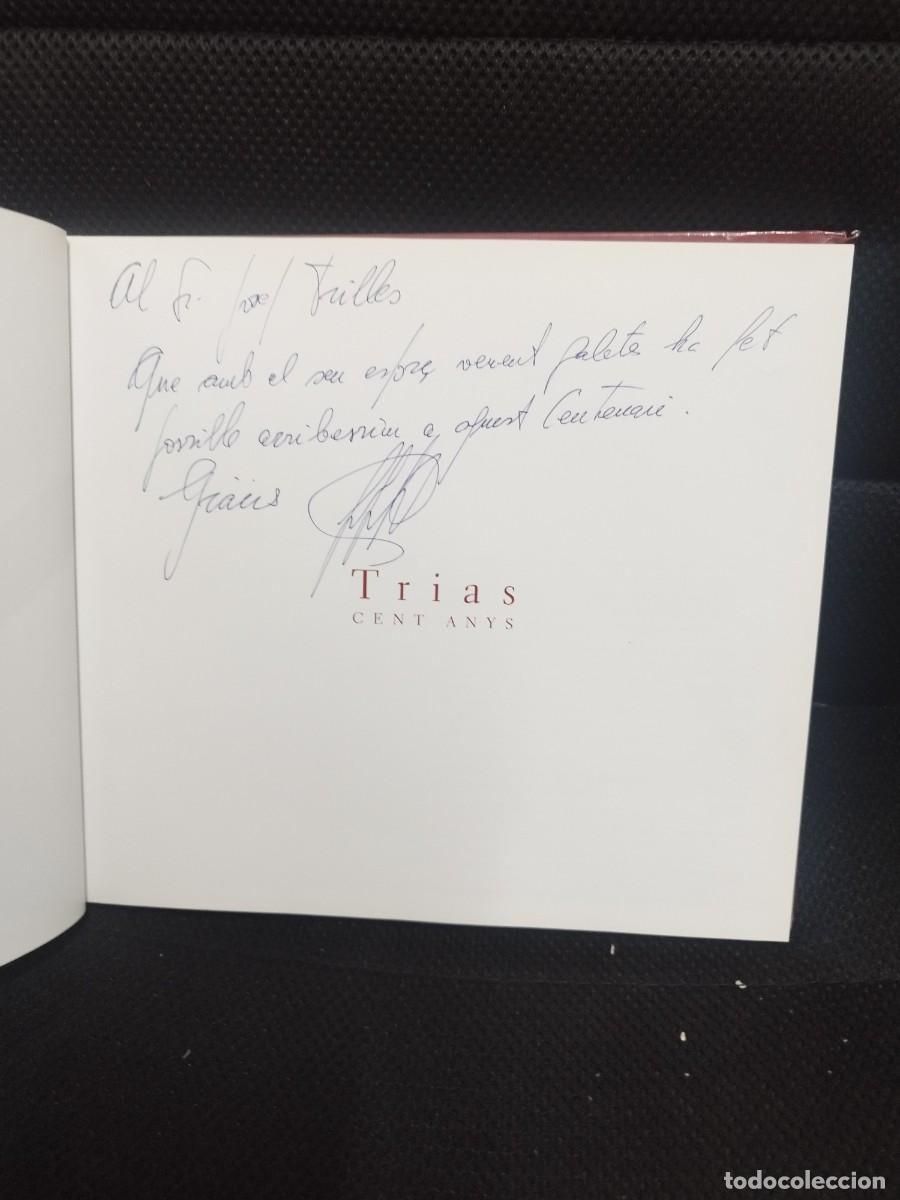 Al Sr. Josep Trilles
Que amb el seu esforç venent galetes ha fet
possible arribessim a aquest Centenari.
Gràcies
Trias
CENT ANYS
todocoleccion